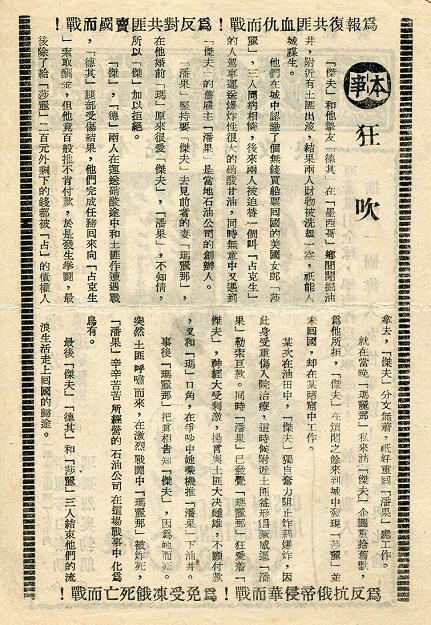 爲報復共匪血仇而戰！爲反對共匪賣國而戰！
本事
狂吹
「傑夫」和他摯友「德其」在「墨西哥」鄉間開掘油
井，附近有土匪出沒，結果兩人財物被洗刼一空，祇能入
城謀生。
他們在城中認識了個無錢買船票回國的美國女郎「莎
麗」，三人同病相憐，後來兩人被迫替一個叫「占克生」
的人駕車運送爆炸性很大的硝酸甘油，同時無意中又遇到
「傑夫」的舊雇主「潘果」是當地石油公司的創辦人。
「潘果」堅持要「傑夫」去見前者的妻「瑪麗那」，
在他婚前「瑪」原來很愛「傑夫」，「潘果」，不知情，
所以「傑」加以拒絕。
「傑」，「德」兩人在運送硝酸途中和土匪作遭遇戰
，「德其」腿部受傷結果，他們完成任務回來向「占克生
」索取酬金，但他竟百般推不肯付款，於是發生爭鬪，最
後除了給「莎麗」二百元外剩下的錢都被「占」的債權人
拿去，「傑夫」分文無着，祇好重回「潘果」處工作。
就在當晚「瑪麗那」私來訪「傑夫」企圖重拾舊歡，
爲他所拒，「傑夫」在煩悶之餘來到城中發現「莎麗」並
未回國，却在某賭窟中工作。
某次在油田中，「傑夫」獨自奮力阻止炸藥爆炸，因
此身受重傷入院治療，這時候附近土匪徒形猖獗威逼「潘
果」勒索巨款。同時「潘果」已發覺「瑪麗那」狂愛着「
傑夫」，神經大受刺激，揚言與土匪大決雌雄，不願付款
，又和「瑪」口角，在爭吵中她乘機推「潘果」下油井。
事後「瑪麗那」把真相告知「傑夫」，因爲她而死。
突然土匪呼嘯而來，在激烈戰鬪中「瑪麗那」被炸死，
「潘果」辛辛苦苦所經營的石油公司在這場戰事中化爲
烏有。
最後「傑夫」「德其」和「莎麗」三人結束他們的流
浪生活走上回國的歸途。
爲反抗俄帝侵華而戰！爲免受凍餓死亡而戰！